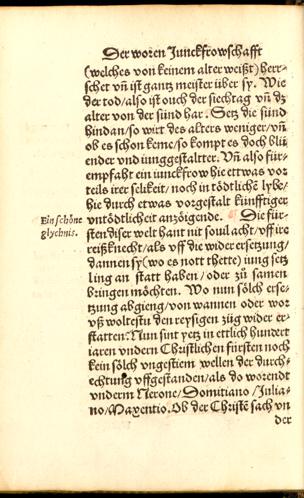 Der woren Junckfrowschafft
(welches von keinem alter weißt) herr⸗
schet vñ ist gantz meister über sy. Wie
der tod/also ist ouch der siechtag vñ dz
alter von der sünd har. Setz die sünd
hindan/so wirt des alters weniger/vñ
ob es schon keme/so kompt es doch blü
ender vnd iunggestaltter. Vñ also für⸗
empfaht ein iunckfrow hie ettwas vor
teils irer selikeit/noch in tödtliche lybe/
hie durch etwas vorgestalt künfftiger
vntödtlicheit anzöigende. Die für⸗
Ein schöne
glychnis.
sten diser welt hant nit soul acht/vff ire
reißknecht/als vff die widerersetzung/
dannen sy (wo es nott thette) iung setz
ling an statt haben/oder zů samen
bringen möchten. Wo nun sölch erse⸗
tzung abgieng/von wannen oder wor
vß woltestu den reysigen züg wider er⸗
statten: Nun sint yetz in ettlich hundert
iaren vndern Christlichen fürsten noch
kein sölch vngestiem wellen der durch⸗
echtung vffgestanden/als do worendt
vnderm Nerone/Domitiano/Iulia⸗
no/Maxentio. Ob der Christē sach vn
der